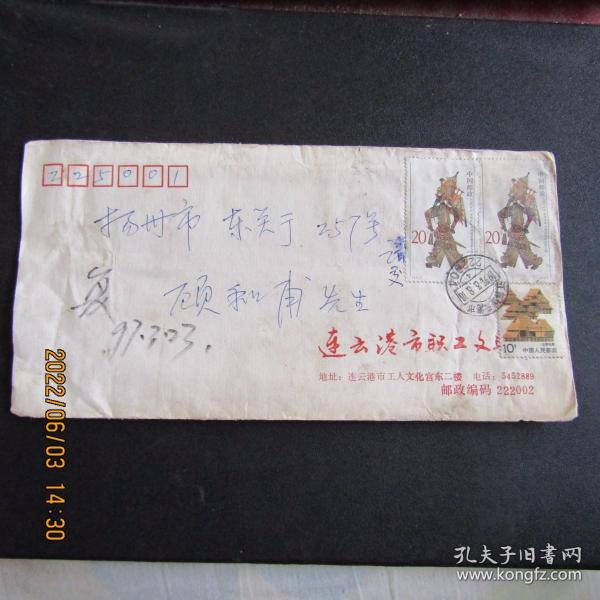 225001
扬州市 东关于 257号
请交
顾和甫先生
复
97.3.23.
中国邮政
20
中国邮政
20
10分
中国人民邮政
连云港市职工文
地址：连云港市工人文化宫东二楼 电话：5452889
邮政编码 222002
2022/06/03 14:30
孔夫子旧书网
www.kongfz.com